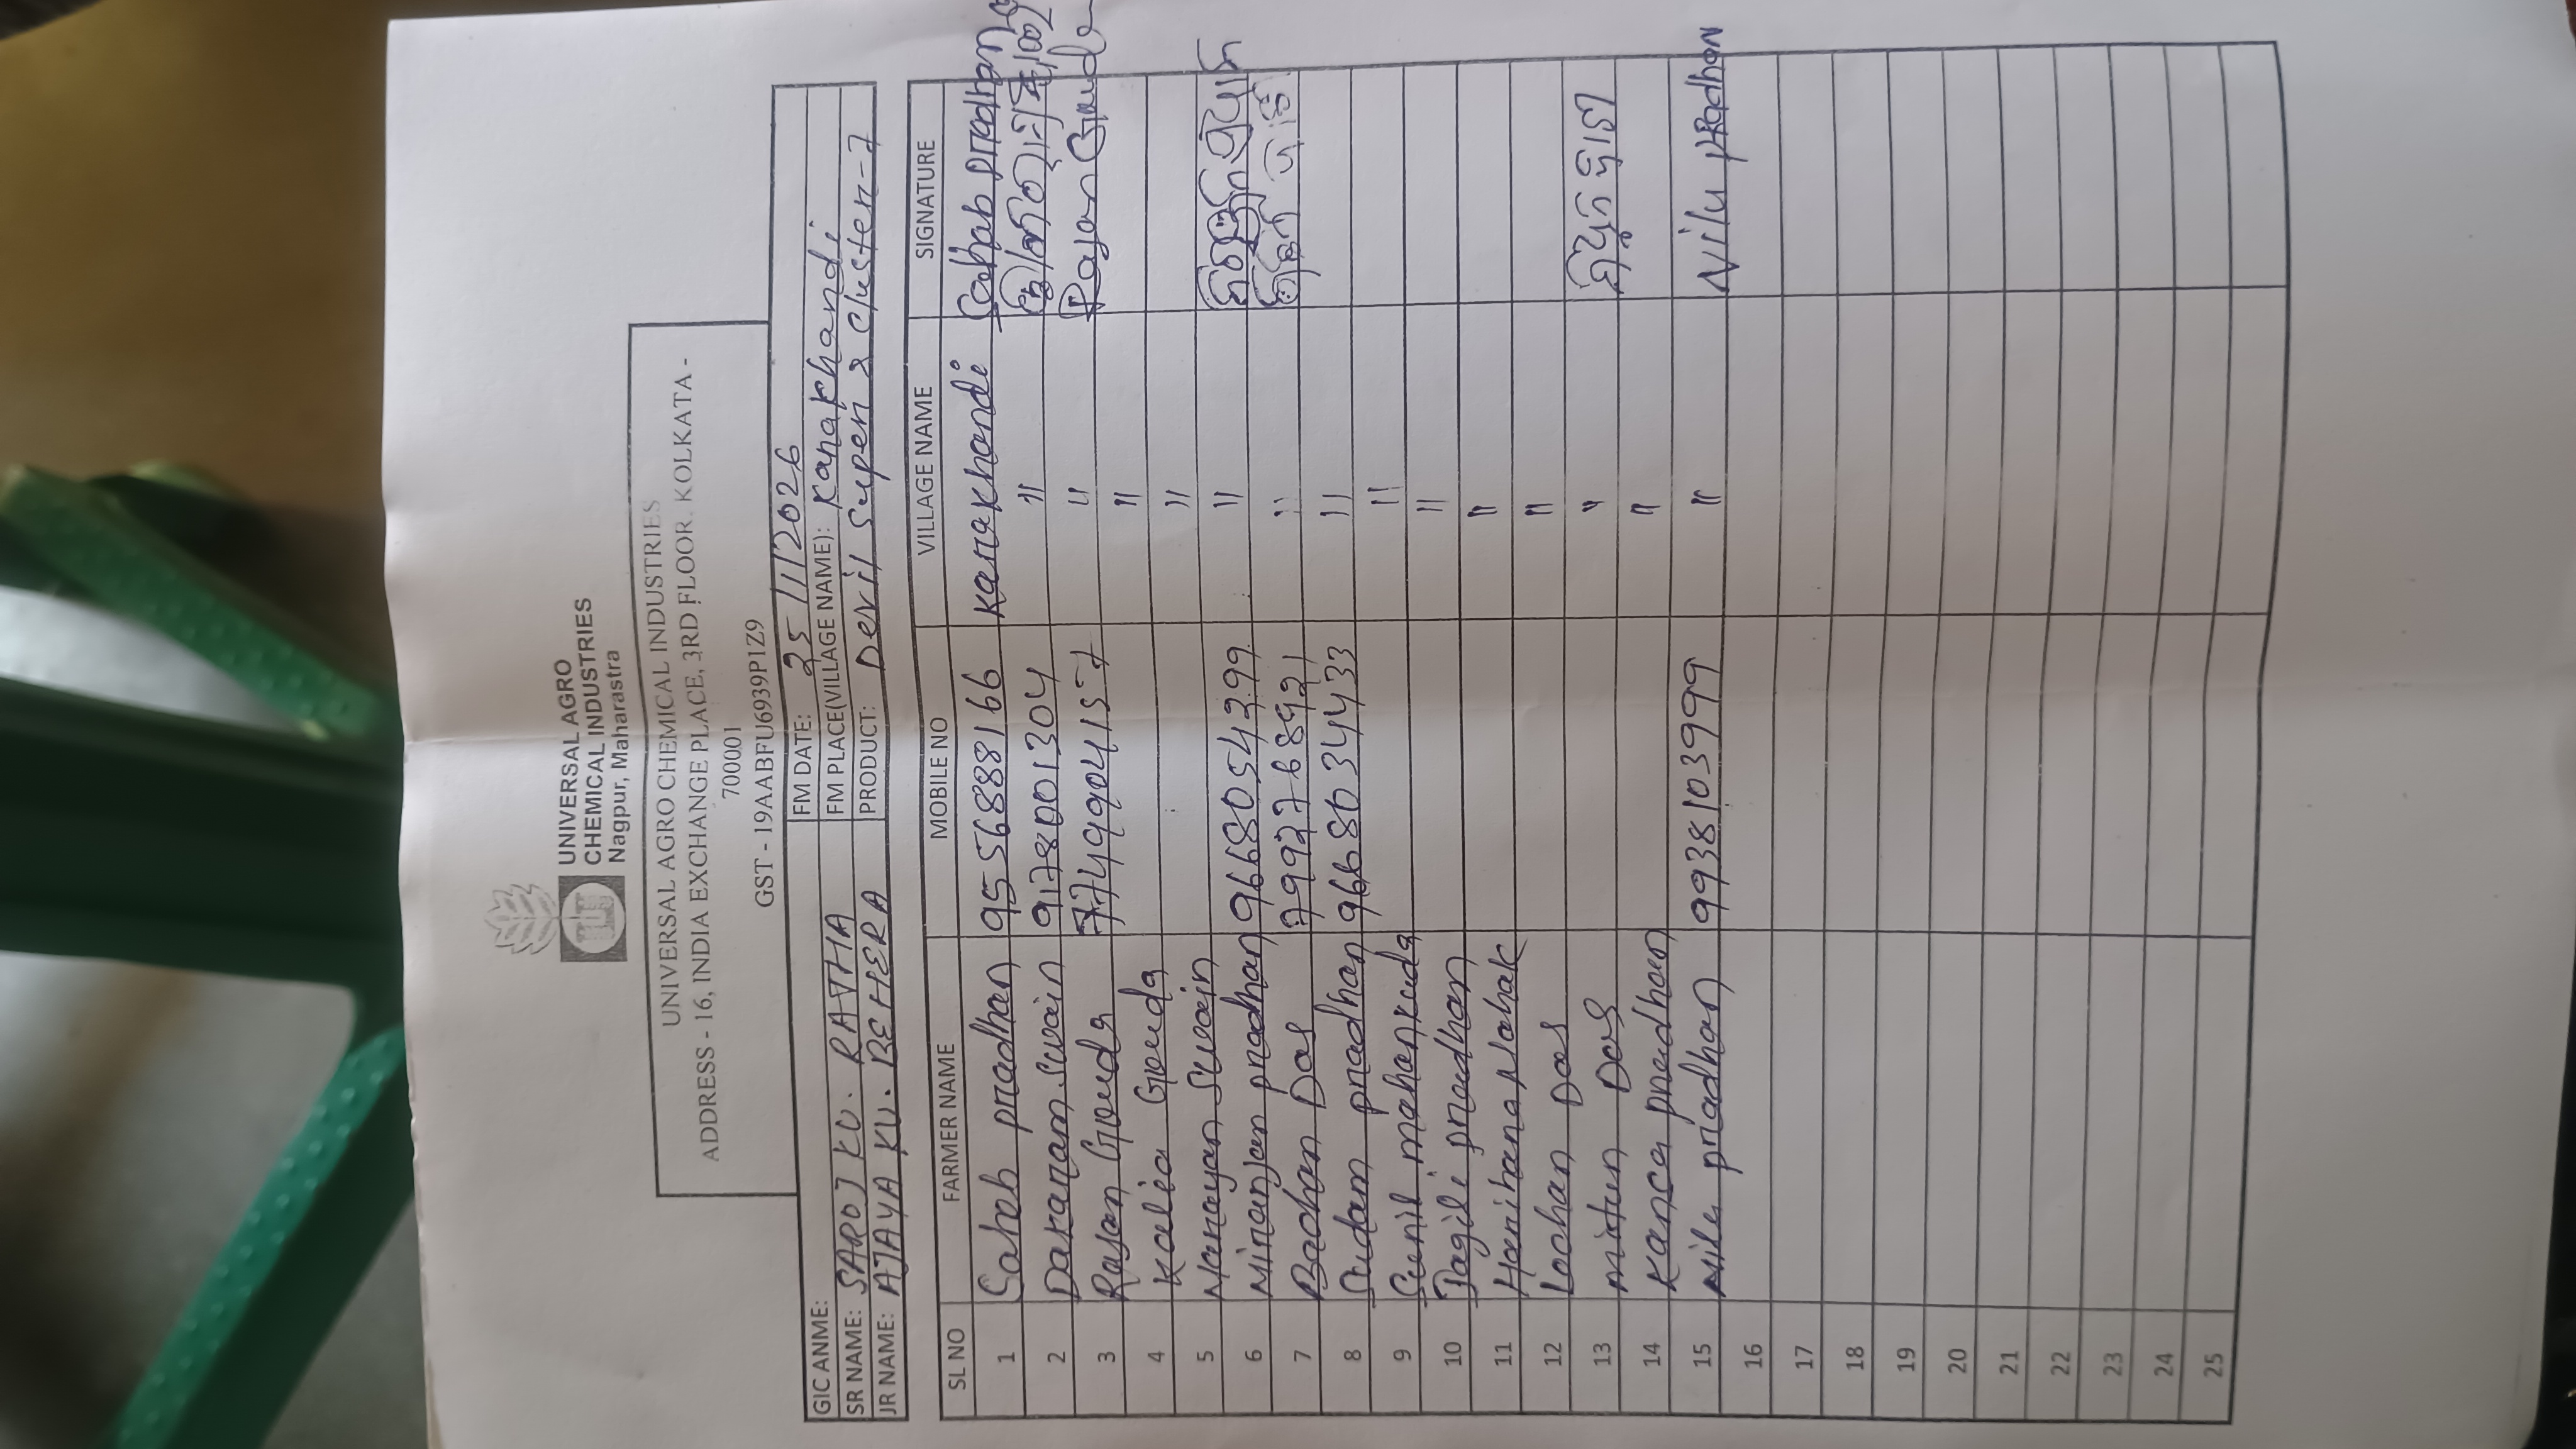 UNIVERSAL AGRO
CHEMICAL INDUSTRIES
Nagpur, Maharastra
UNIVERSAL AGRO CHEMICAL INDUSTRIES
ADDRESS - 16, INDIA EXCHANGE PLACE, 3RD FLOOR. KOLKATA -
700001
GST - 19AABFU6939P1Z9
GIC ANME: FM DATE: 25/1/2026
SR NAME: SAROJ KU. RATHA FM PLACE(VILLAGE NAME): Kanakhandi
JR NAME: AJAYA KU. BEHERA PRODUCT: Devil Super & Cluster-7
SL NO FARMER NAME MOBILE NO VILLAGE NAME SIGNATURE
1 Sahab pradhan 9556888166 Kanakhandi Sahab pradhan
2 Dakaram Swain 9178001304 "
3 Rajan Gouda 7749904157 " Rajan Gouda
4 Kalia Gouda "
5 Narayan Swain "
6 Niranjan pradhan 9668054299 "
7 Badhan Das 7992768921 "
8 Sudam pradhan 9668034433 "
9 Sunil mahankuda "
10 Jagili pradhan "
11 Harihara Nahak "
12 Lochan Das "
13 mitun Das "
14 Kanca pradhan "
15 Nilu pradhan 9938103999 " Nilu pradhan
16
17
18
19
20
21
22
23
24
25